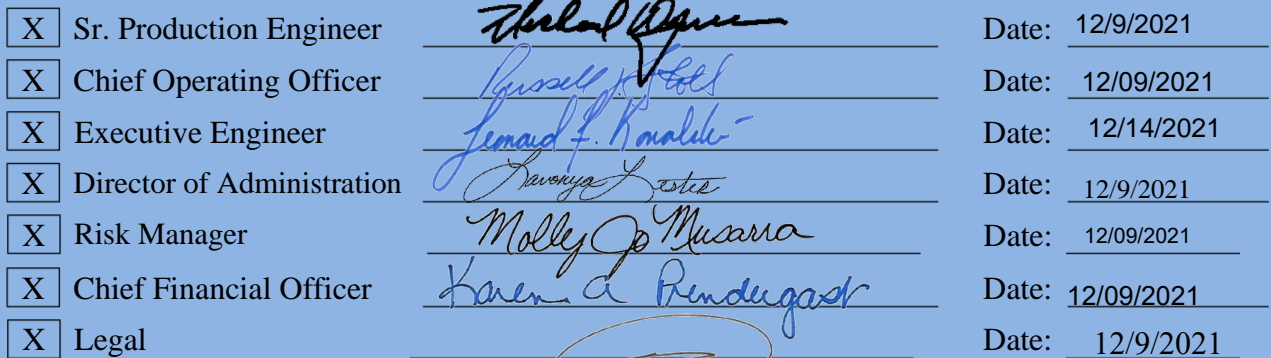 X Sr. Production Engineer Date: 12/9/2021
X Chief Operating Officer Russell J. Date: 12/09/2021
X Executive Engineer Leonard F. Date: 12/14/2021
X Director of Administration Lavonya Lester Date: 12/9/2021
X Risk Manager Molly Jo Musarra Date: 12/09/2021
X Chief Financial Officer Karen A Prendergast Date: 12/09/2021
X Legal Date: 12/9/2021